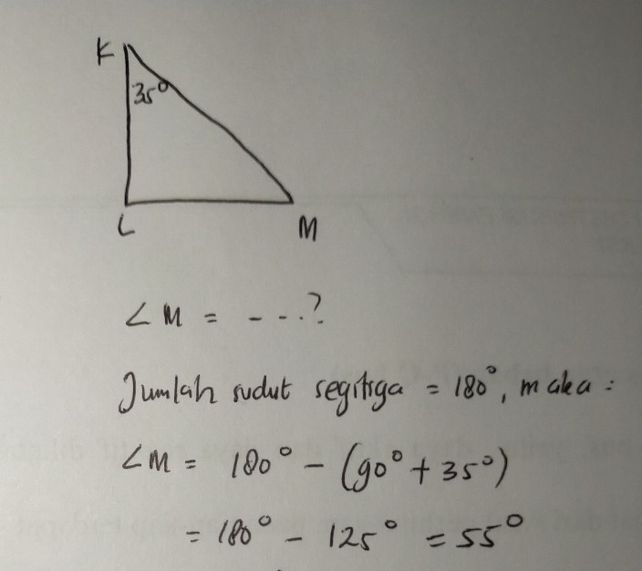 K
35°
L
M
∠M = ----?
Jumlah sudut segitiga = 180°, maka :
∠M = 180° - (90° + 35°)
= 180° - 125° = 55°